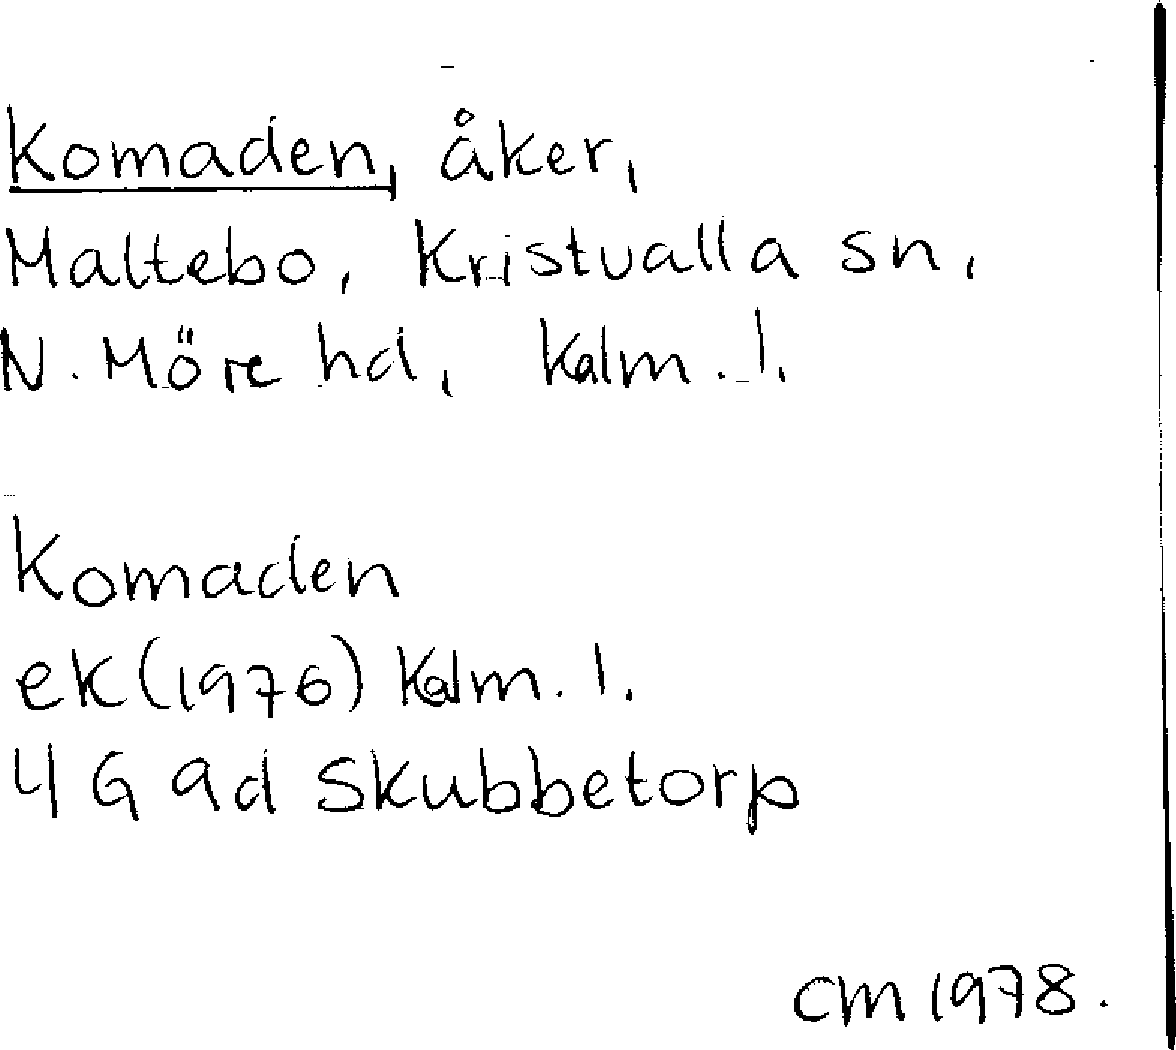 Komaden, åker,
Maltebo, Kristvalla sn,
N. Möre hd, Kalm. l.
Komaden
ek (1976) Kalm. l.
4 G 9d Skubbetorp
CM 1978.